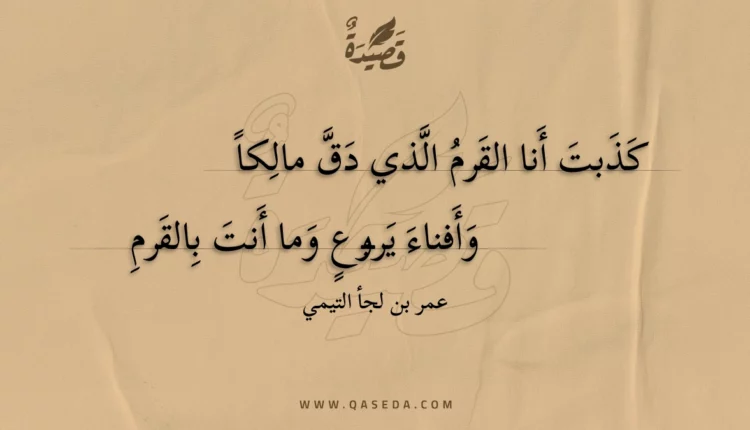 قَصِيدَةٌ
كَذَبتَ أَنا القَرمُ الَّذي دَقَّ مالِكاً
وَأَفناءَ يَربوعٍ وَما أَنتَ بِالقَرمِ
عمر بن لجأ التيمي
WWW.QASEDA.COM